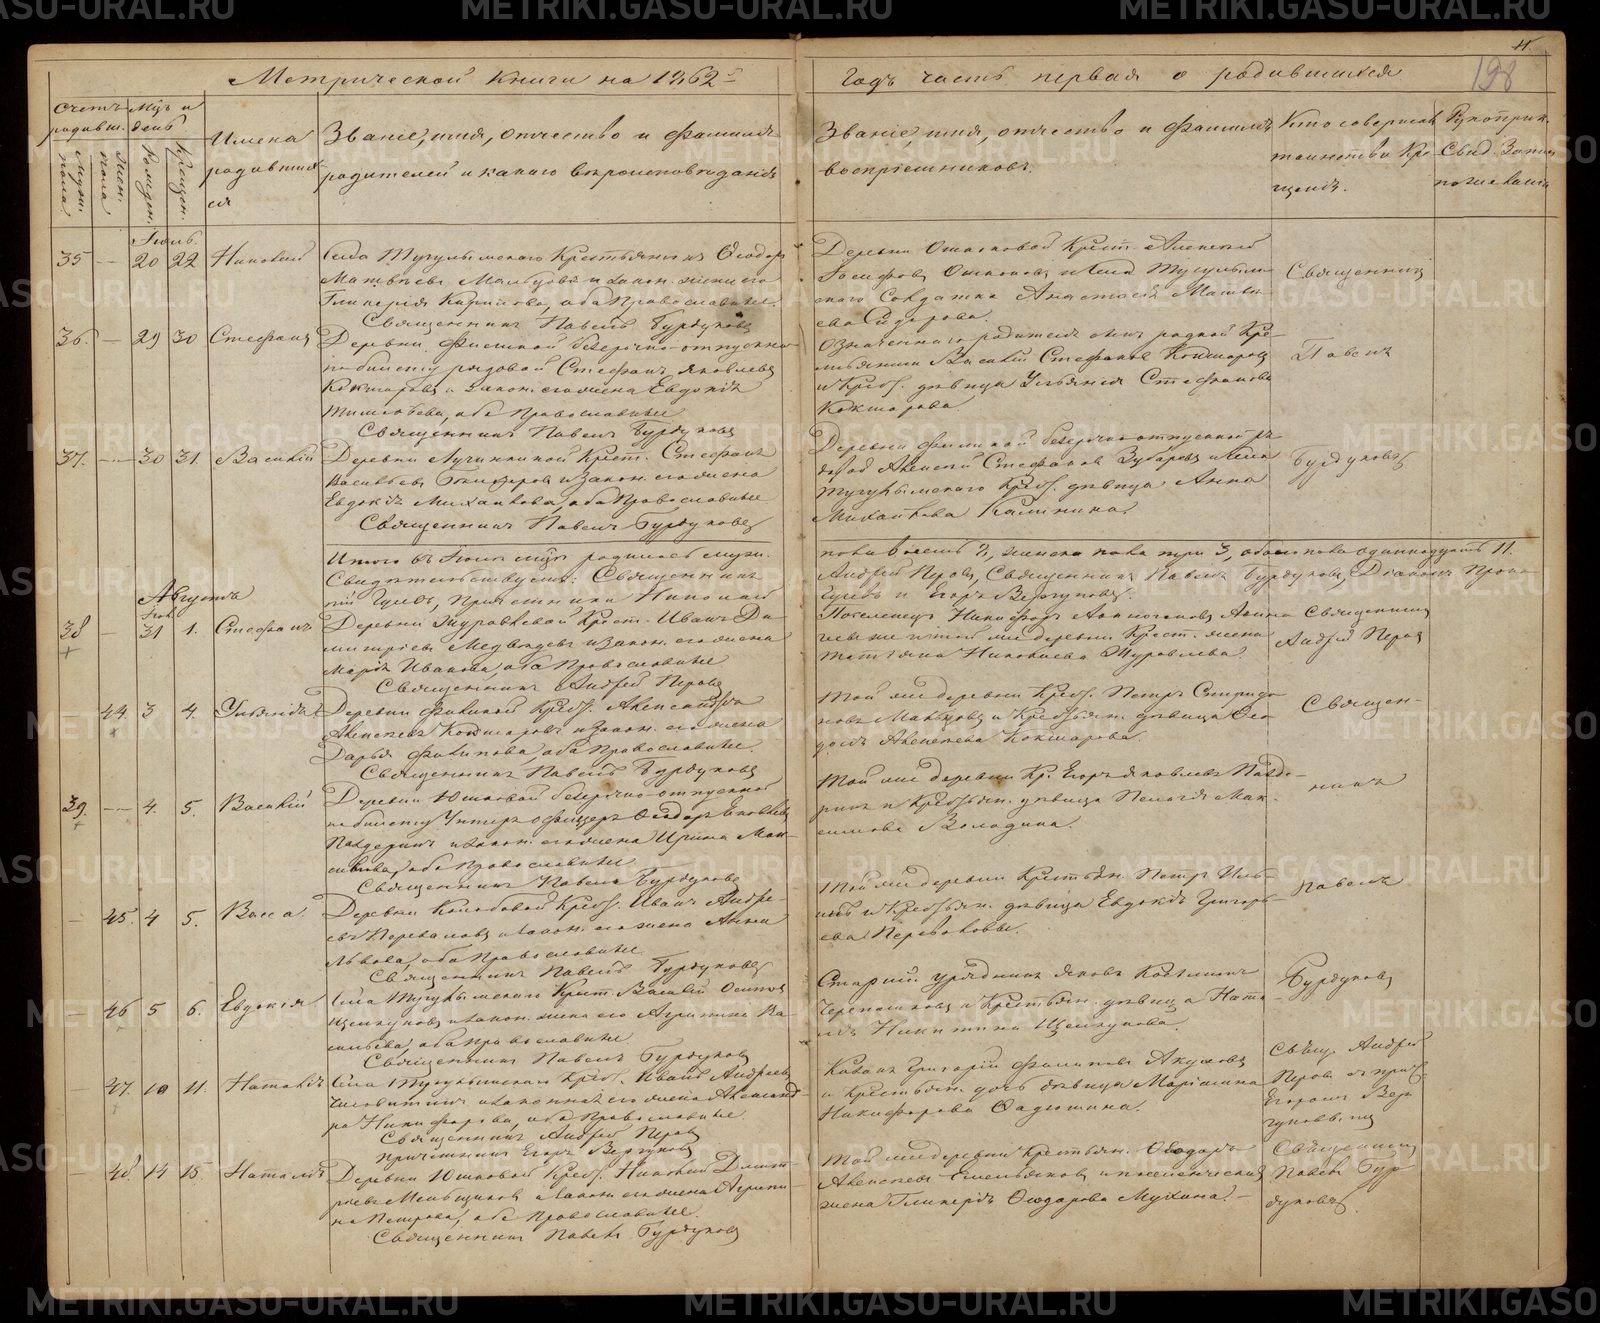 METRIKI.GASO-URAL.RU
Метрической книги на 1862й
Годъ часть первая о родившихся
198
Счетъ родивш.
Муж. пола
Жен. пола
Мцъ и день
Рожден.
Крещен.
Имена родившихся
Званіе, имя, отчество и фамилія
родителей и какого вѣроисповѣданія
Званіе, имя, отчество и фамилія
воспріемниковъ.
Кто совершалъ
таинство Кре
щенія.
Рукоприк.
Свид. Запис
по желанію
Іюль.
35 — 20 22 Николай
Села Тугулымскаго Крестьянинъ Ѳеодоръ
Матвѣевъ и закон. жена его
Гликерія, оба Православные.
Священникъ Павелъ Бурдуковъ
Деревни Крест. Алексей
Іосифовъ и села Тугулым-
скаго Солдатка Анастасія Матвѣ-
ева Сидорова.
Священникъ
36. — 29 30 Стефанъ
Деревни безсрочно-отпускной
по билету рядовой Стефанъ Яковлевъ
Кокшаровъ и закон. его жена Евдокія
Тимофеева, оба Православные
Священникъ Павелъ Бурдуковъ
Означеннаго родителя сынъ родной Кре-
стьянинъ Василій Стефановъ Кокшаровъ
и Крест. дѣвица Ульянія Стефанова
Кокшарова.
Павелъ
37. — 30 31. Василій
Деревни Лучинкиной Крест. Стефанъ
Васильевъ и закон. его жена
Евдокія Михайлова, оба Православные
Священникъ Павелъ Бурдуковъ
Деревни безсрочно-отпускной
Алексей Стефановъ Зубаревъ и села
Тугулымскаго Крест. дѣвица Анна
Михайлова Калинина
Бурдуковъ
Итого въ Іюлѣ мцѣ родилось муж.
пола восемь 8, женска пола три 3, обоего пола одиннадцать 11.
Свидѣтельствуемъ: Священникъ
Андрей Перовъ, Священникъ Павелъ Бурдуковъ, Діаконъ Проко
пій, Причетники Николай
и Егоръ Вергуновъ.
Августъ
Іюль
38 — 31 1. Стефанъ
Деревни Журавлевой Крест. Иванъ Ди-
митріевъ Медвѣдевъ и закон. его жена
Марія Иванова, оба Православные
Священникъ Андрей Перовъ
Поселенецъ Никифоръ
той же деревни Крест. жена
Татьяна Николаева Журавлева
Священникъ
Андрей Перовъ
44. 3 4. Ульянія
Деревни Крест. Александръ
Алексеевъ Кокшаровъ и закон. его жена
Дарья Филипова, оба Православные.
Священникъ Павелъ Бурдуковъ
Той же деревни Крест. Петръ Спиридо-
новъ и Крестьян. дѣвица Ѳео
досія Алексеева Кокшарова.
Священ-
39. — 4. 5. Василій
Деревни Юшковой безсрочно-отпускной
по билету Унтеръ офицеръ Ѳеодоръ Яковлевъ
и закон. его жена Ирина Мак-
симова, оба Православные
Священникъ Павелъ Бурдуковъ
Той же деревни Кр. Егоръ Яковлевъ
и Крестьян. дѣвица Пелагія Мак-
симова Володина.
никъ
45. 4 5. Васса.
Деревни Колобовой Крест. Иванъ Андре-
евъ Переваловъ и закон. его жена Анна
Львова, оба Православные
Священникъ Павелъ Бурдуковъ
Той же деревни Крестьян. Петръ Иль-
инъ и Крестьян. дѣвица Евдокія Григорь-
ева Перевалова.
Павелъ
46 5 6. Евдокія
Села Тугулымскаго Крест. Василій Осиповъ
Щелкуновъ и закон. жена его Агрипина Ва-
сильева, оба Православные
Священникъ Павелъ Бурдуковъ
Старш. урядникъ Яковъ
Черепановъ и Крестьян. дѣвица Ната-
лія Никитина Щелкунова.
Бурдуковъ
47. 10 11. Наталія
Села Тугулымскаго Крест. Иванъ Андреевъ
и законная его жена Александ-
ра Никифорова, оба Православные
Священникъ Андрей Перовъ
Причетникъ Егоръ Вергуновъ
Казакъ Григорій Филиповъ Акуловъ
и Крестьян. дочь дѣвица Маріамна
Никифорова Федюшина.
Свящ. Андрей
Перовъ съ прич.
Егоромъ Вер
гуновымъ
48. 14 15. Наталія
Деревни Юшковой Крест. Николай Дмит-
ріевъ Меньщиковъ и закон. его жена Агрипи-
на Петрова, оба Православные.
Священникъ Павелъ Бурдуковъ
Той же деревни Крестьян. Ѳеодоръ
Алексеевъ Емельяновъ и поселенческая
жена Гликерія Ѳеодорова Мухина.
Священникъ
Павелъ Бур
дуковъ.